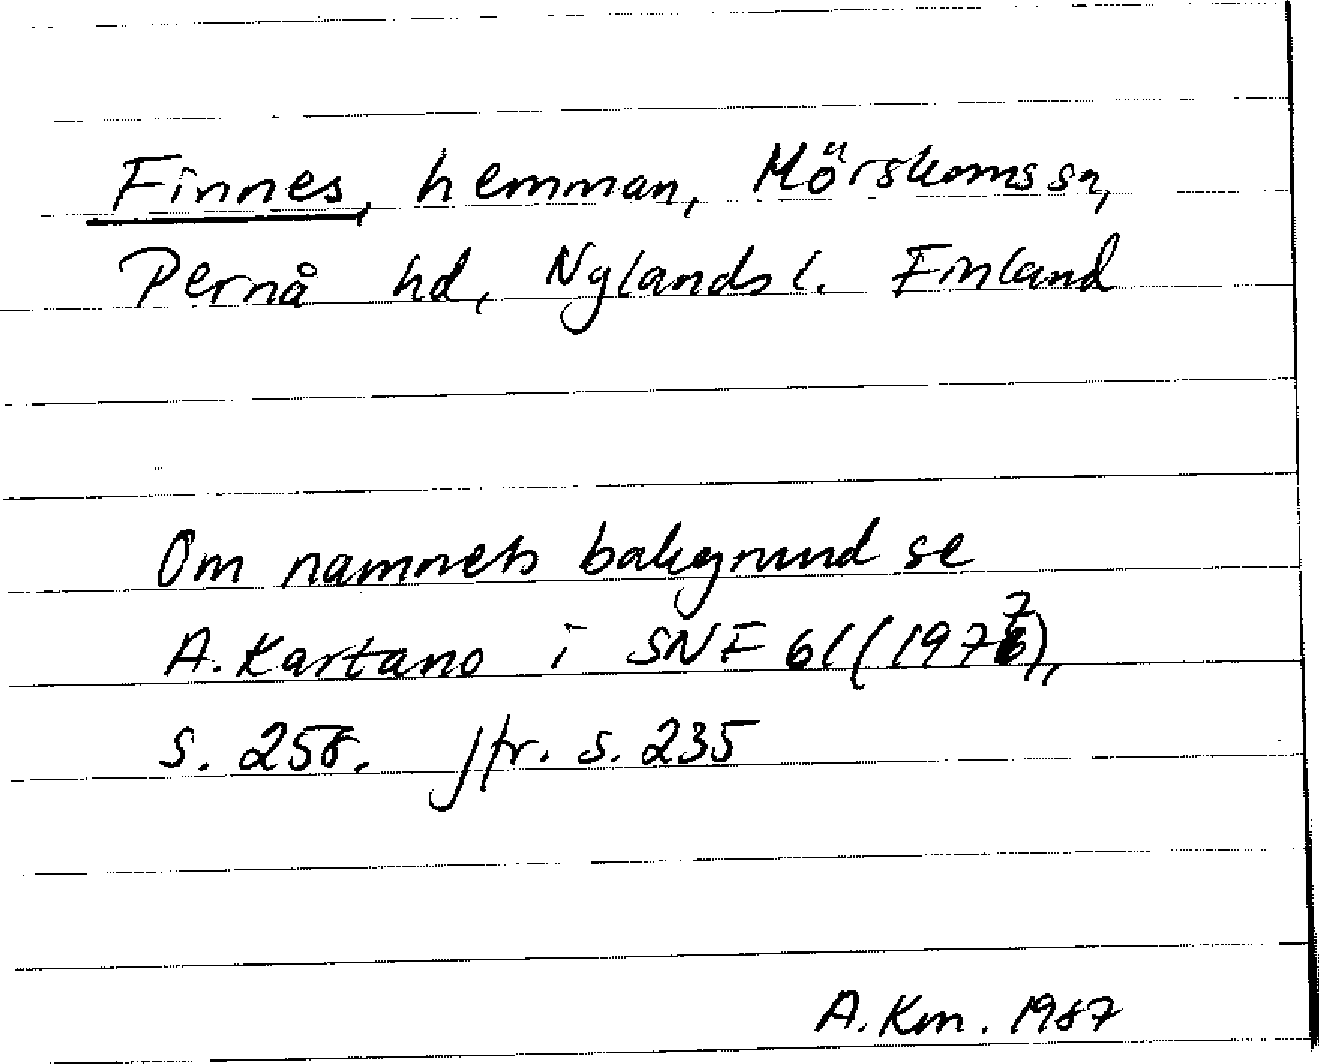 Finnes, hemman, Mörskoms sn,
Pernå hd, Nylands l. Finland
Om namnets bakgrund se
A. Kartano i SNF 61 (1977),
s. 258. Jfr. s. 235
A. Km. 1987